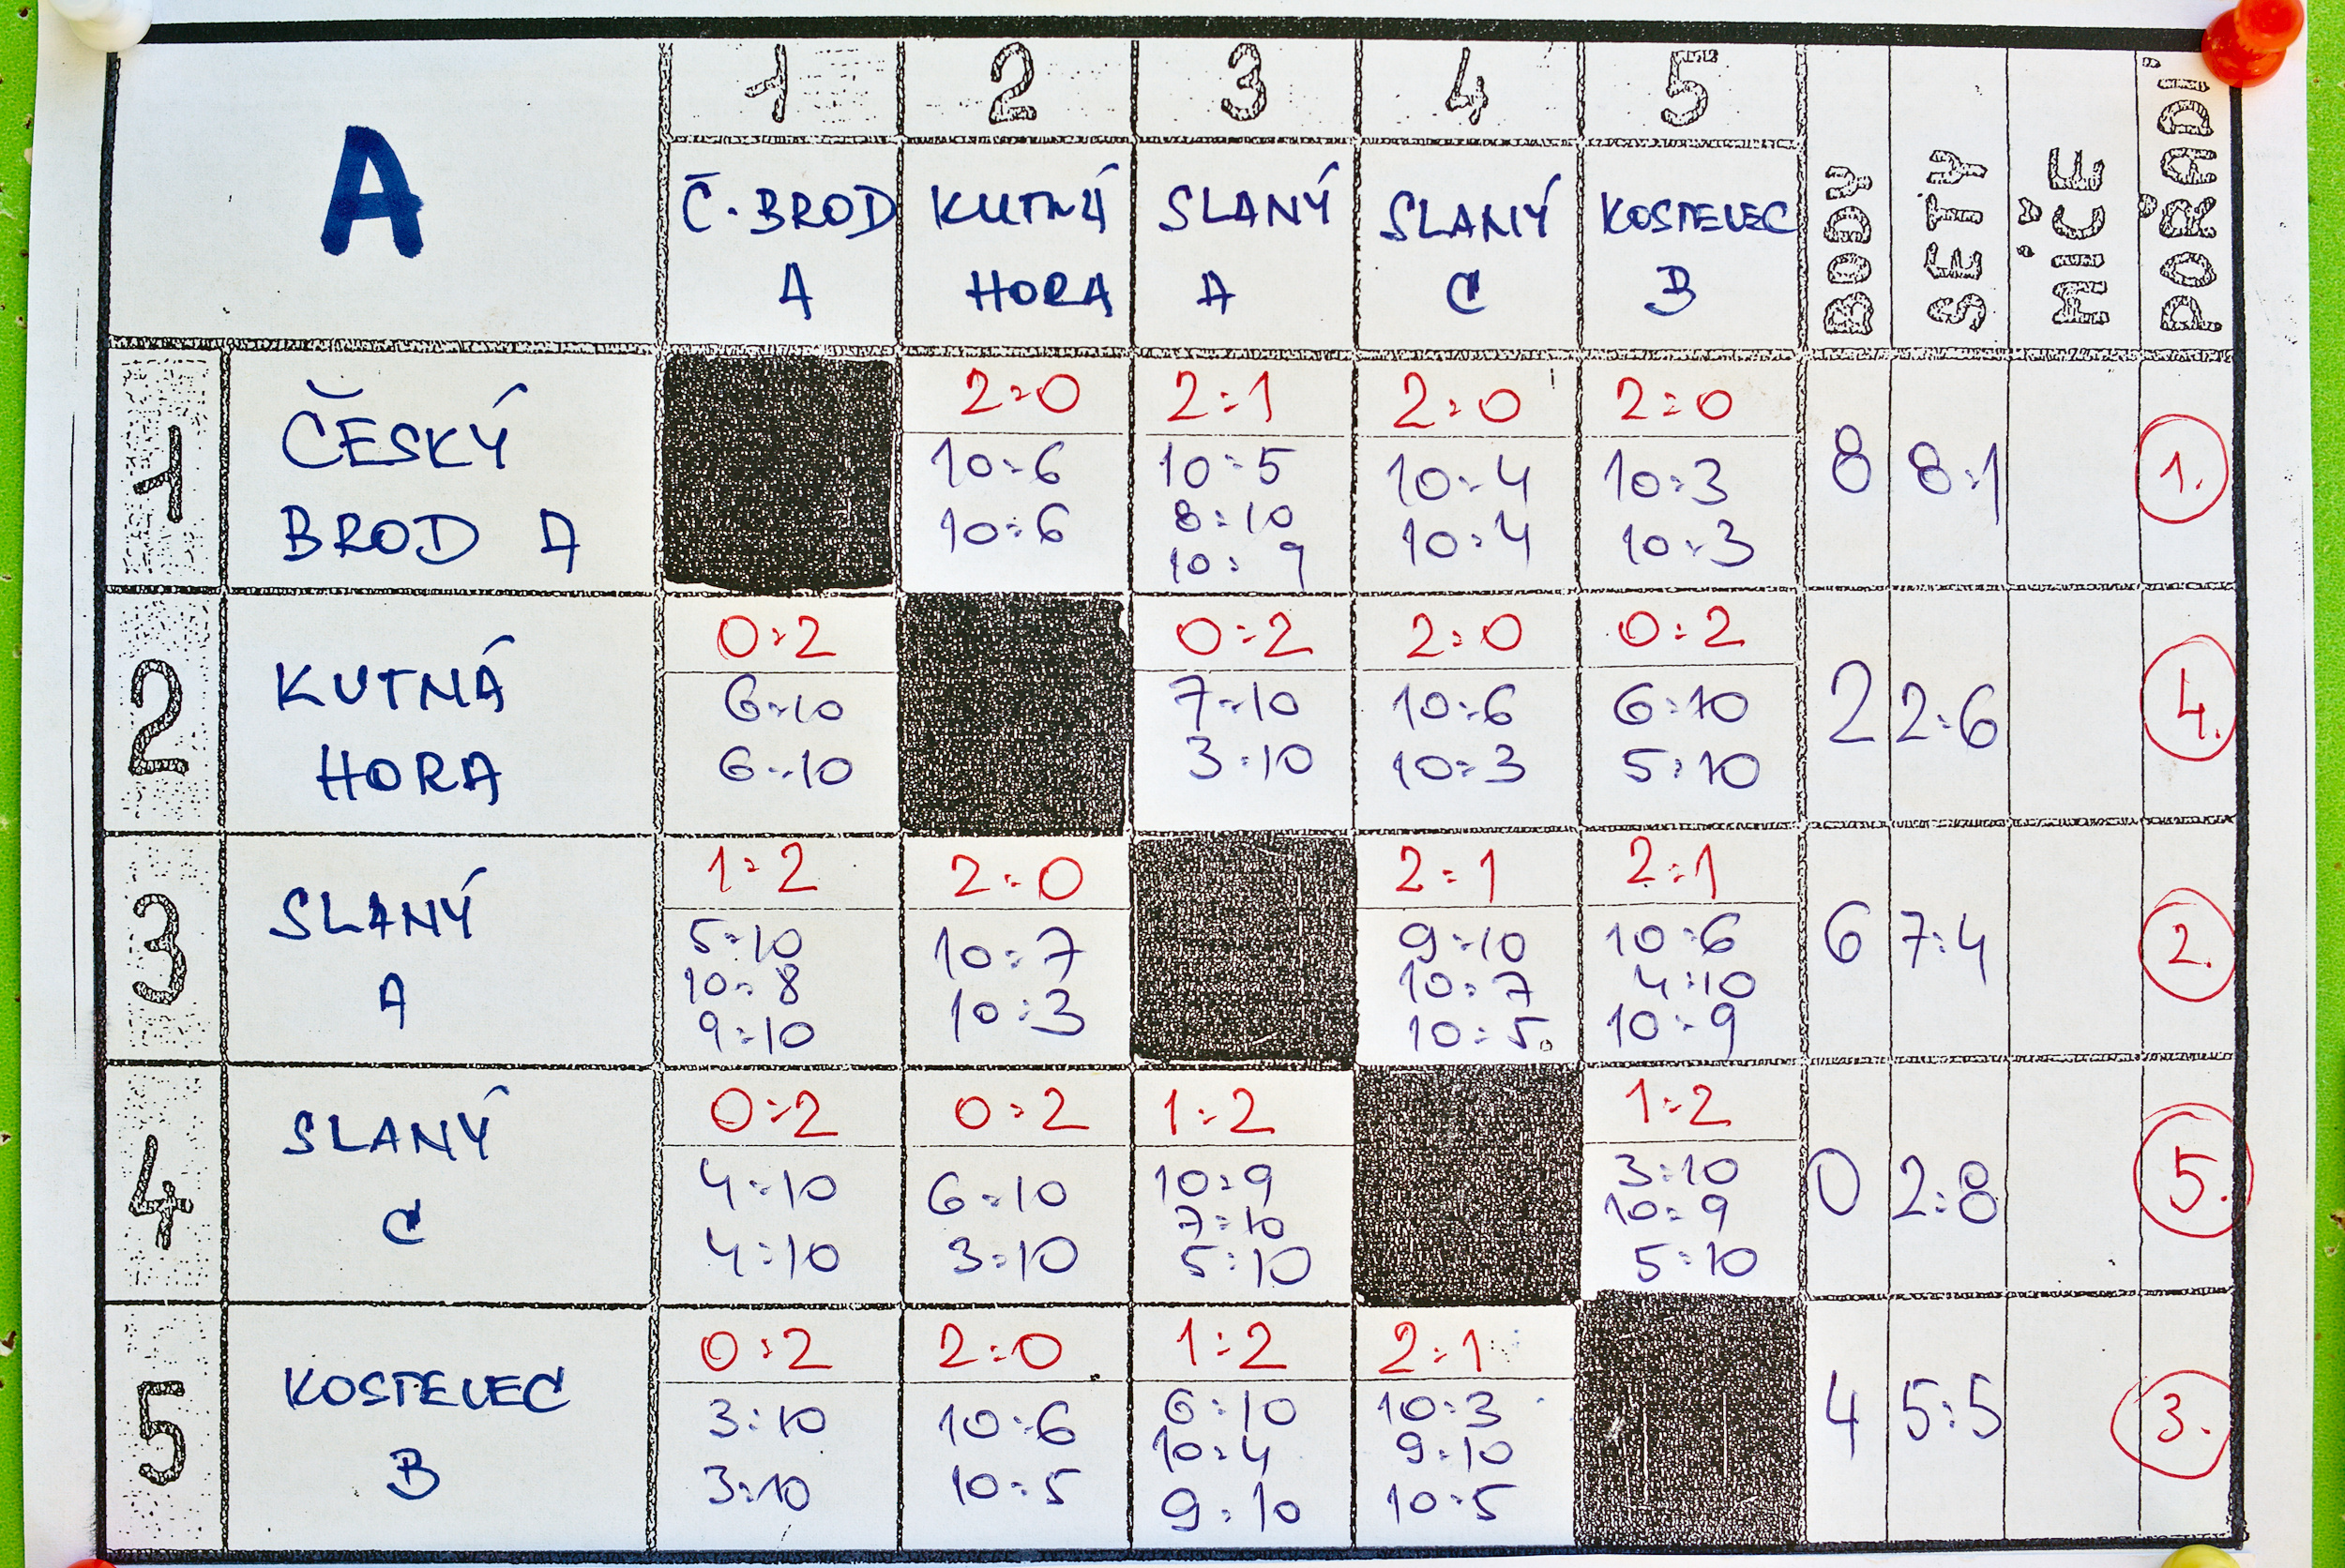 A
1 2 3 4 5
Č. BROD A
KUTNÁ HORA
SLANÝ A
SLANÝ C
KOSTELEC B
BODY
SETY
MÍČE
POŘADÍ
1
ČESKÝ
BROD A
2:0 2:1 2:0 2:0
10:6 10:5 10:4 10:3
10:6 8:10 10:4 10:3
10:9
8 8:1 1.
2
KUTNÁ
HORA
0:2 0:2 2:0 0:2
6:10 7:10 10:6 6:10
6:10 3:10 10:3 5:10
2 2:6 4.
3
SLANÝ
A
1:2 2:0 2:1 2:1
5:10 10:7 9:10 10:6
10:8 10:3 10:7 4:10
9:10 10:5 10:9
6 7:4 2.
4
SLANÝ
C
0:2 0:2 1:2 1:2
4:10 6:10 10:9 3:10
4:10 3:10 7:10 10:9
5:10 5:10
0 2:8 5.
5
KOSTELEC
B
0:2 2:0 1:2 2:1
3:10 10:6 6:10 10:3
3:10 10:5 10:4 9:10
9:10 10:5
4 5:5 3.